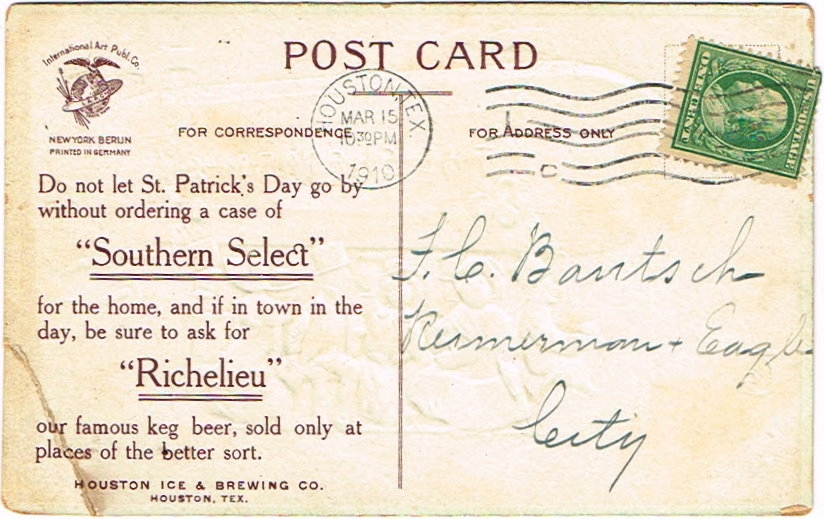 POST CARD
International Art Publ. Co.
NEW YORK BERLIN
PRINTED IN GERMANY
FOR CORRESPONDENCE
HOUSTON, TEX.
MAR 15
10 30 PM
1910
FOR ADDRESS ONLY
Do not let St. Patrick's Day go by
without ordering a case of
"Southern Select"
for the home, and if in town in the
day, be sure to ask for
"Richelieu"
our famous keg beer, sold only at
places of the better sort.
HOUSTON ICE & BREWING CO.
HOUSTON, TEX.
F. C. Bautsch
+ Eagle
City